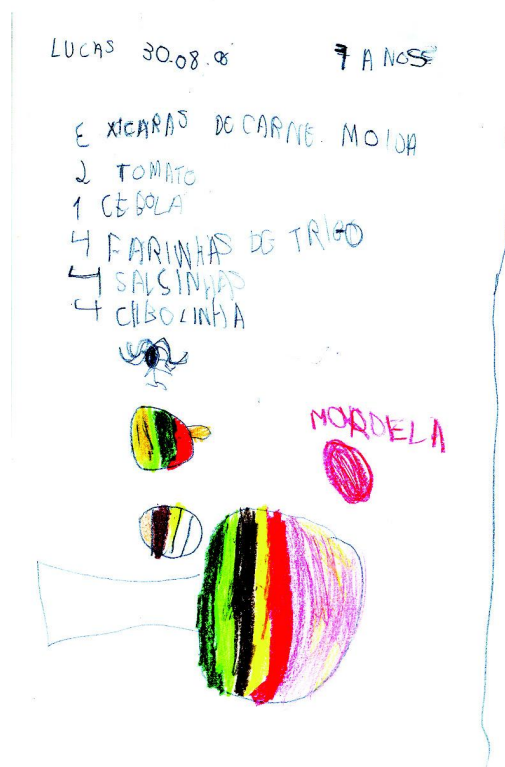 LUCAS 30.08.06 7 ANOS
E XICARAS DE CARNE MOIDA
2 TOMATO
1 CEBOLA
4 FARINHAS DE TRIGO
4 SALSINHAS
4 CIBOLINHA
MORDELA